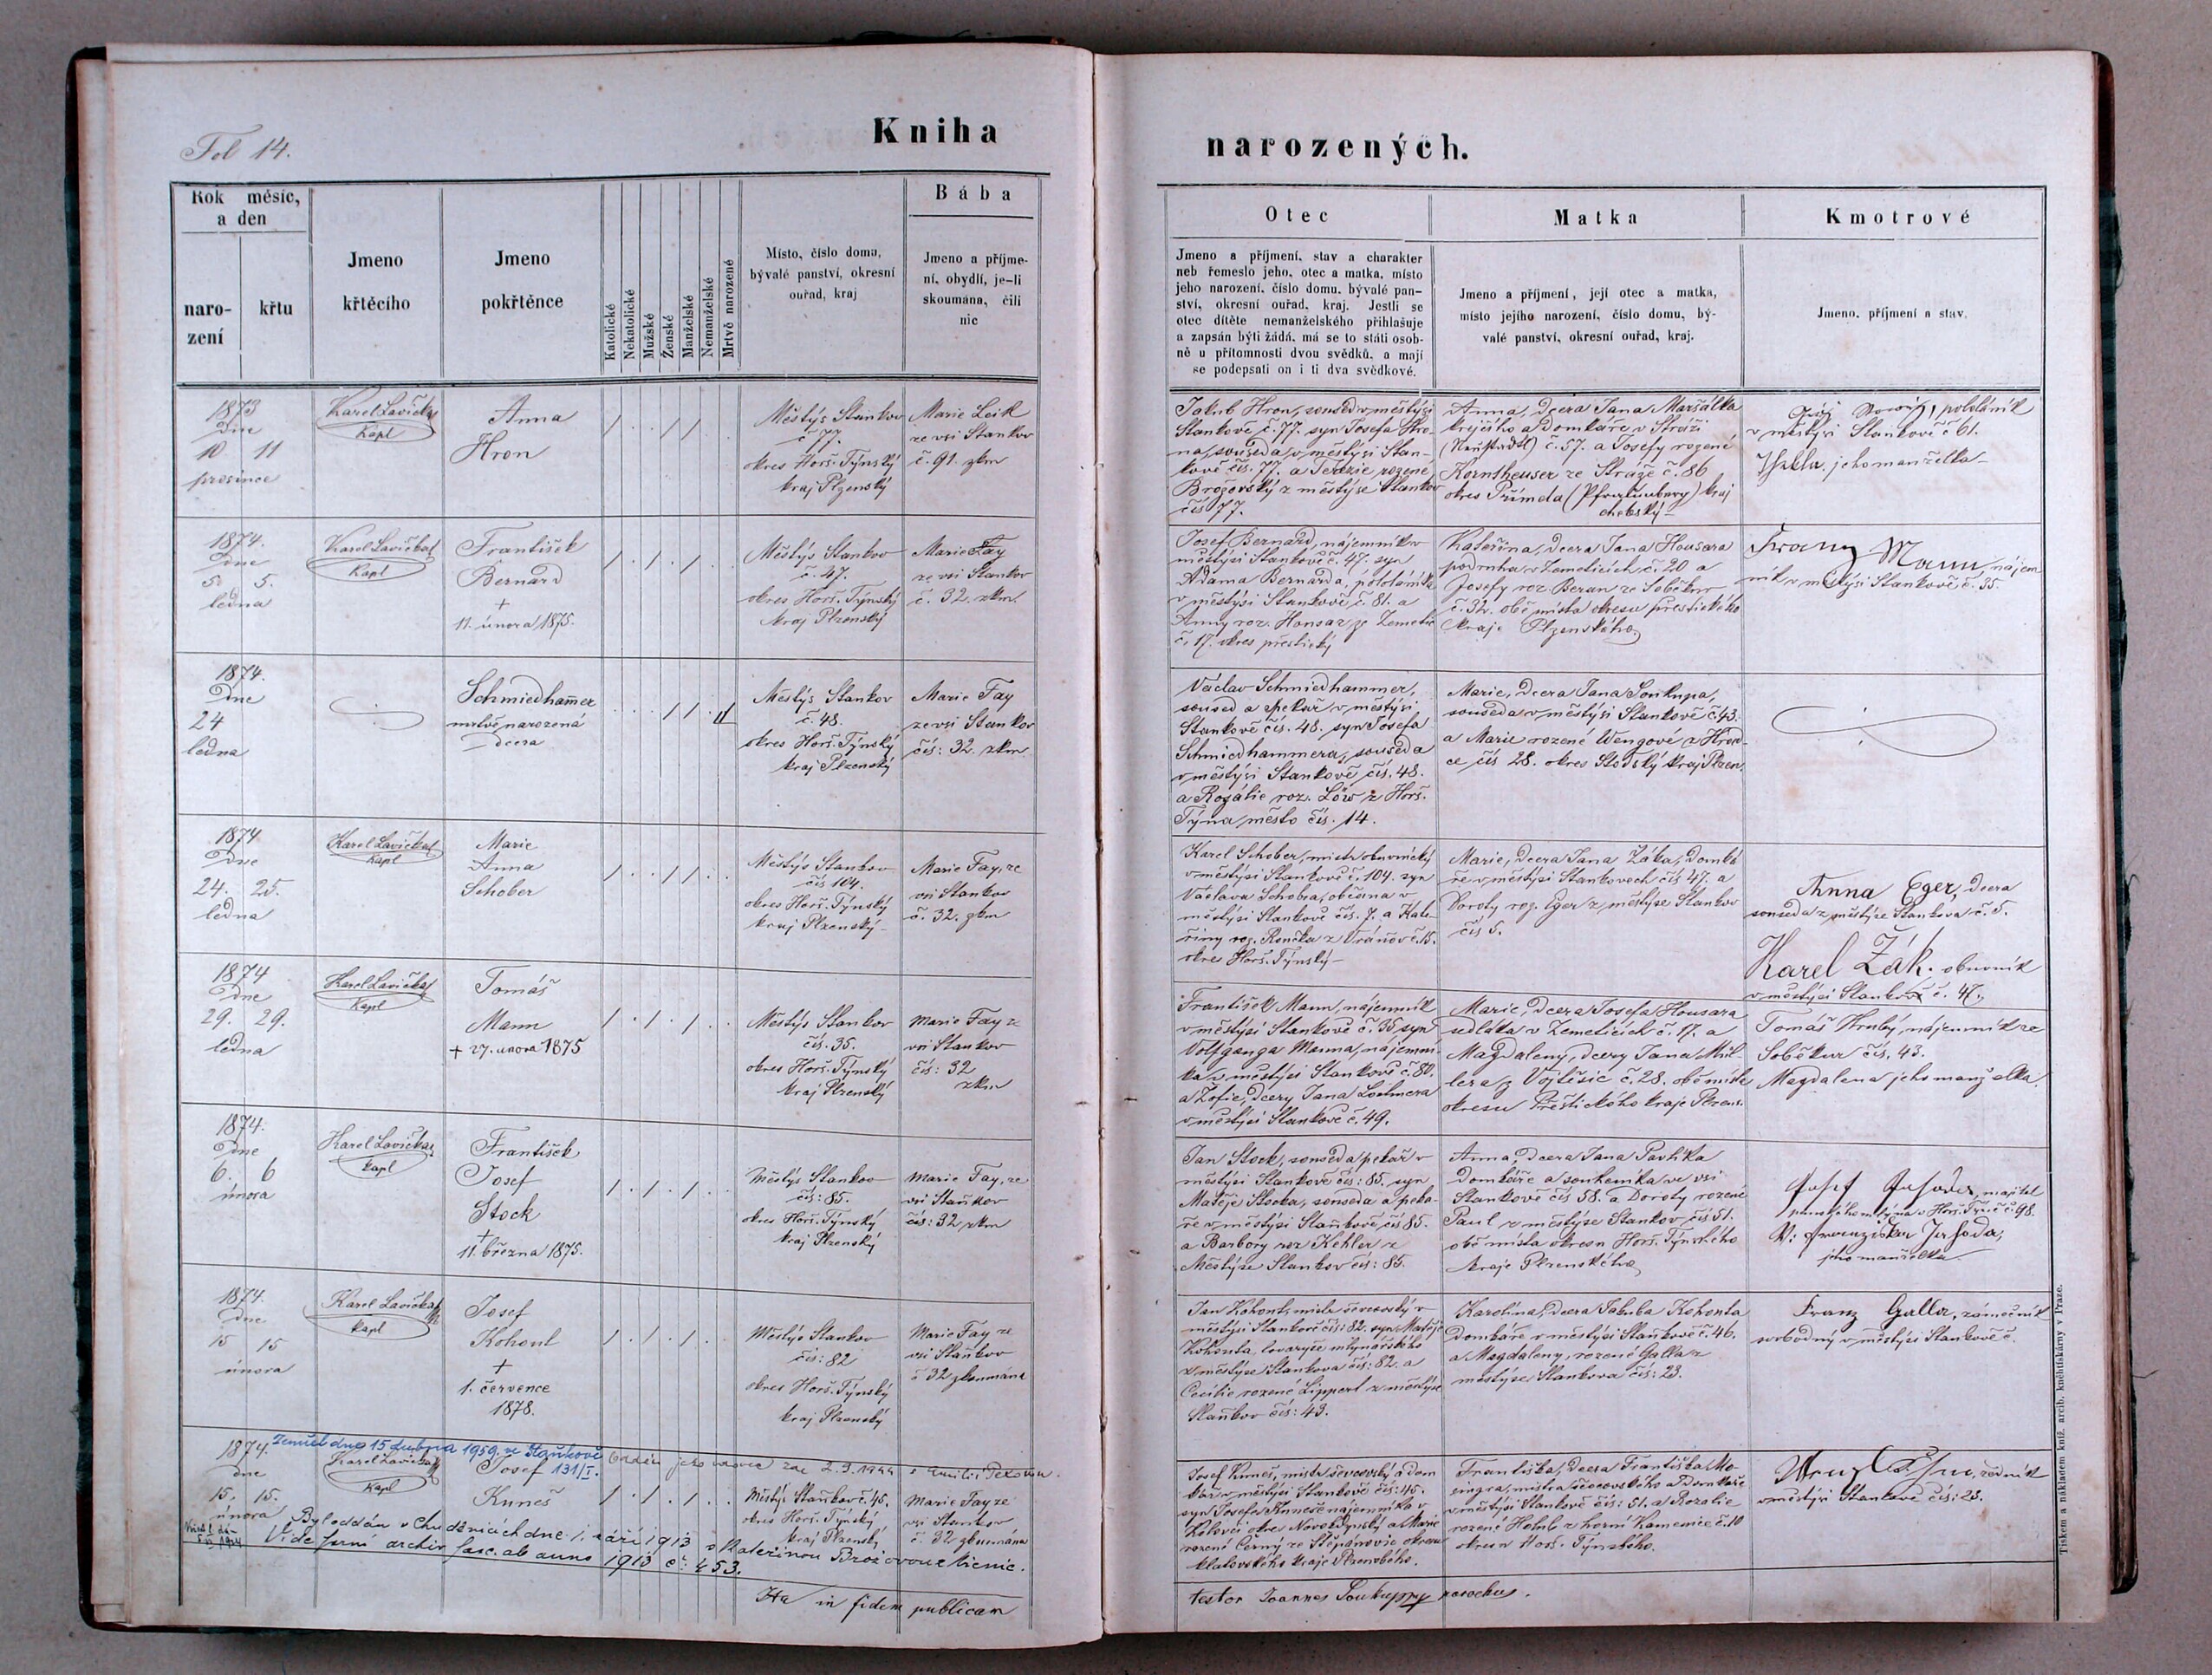 Fol 14.
Kniha
narozených.
Rok měsíc,
a den
naro-
zení
křtu
Jmeno
křtěcího
Jmeno
pokřtěnce
Katolické
Nekatolické
Mužské
Ženské
Manželské
Nemanželské
Mrtvě narozené
Místo, číslo domu,
bývalé panství, okresní
ouřad, kraj
Bába
Jmeno a příjme-
ní, obydlí, je-li
skoumána, čili
nic
Otec
Jmeno a příjmení, stav a charakter
neb řemeslo jeho, otec a matka, místo
jeho narození, číslo domu, bývalé pan-
ství, okresní ouřad, kraj. Jestli se
otec dítěte nemanželského přihlašuje
a zapsán býti žádá, má se to státi osob-
ně u přítomnosti dvou svědků, a mají
se podepsati on i ti dva svědkové.
Matka
Jmeno a příjmení, její otec a matka,
místo jejího narození, číslo domu, bý-
valé panství, okresní ouřad, kraj.
Kmotrové
Jmeno, příjmení a stav.
1873
Dne
10 11
prosince
Karel Lavička
Kapl
Anna
Hron
Městýs Stankov
č 77.
okres Horš. Týnský
kraj Plzenský
Marie Leik
ze vsi Stankov
č. 91. zkm
Jakub Hron, soused v městýsi
Stankově č. 77. syn Josefa Hro-
na, souseda v městýsi Stan-
kově čís. 77. a Terezie rozené
Brožovský z městýse Stankov
čís 77.
Anna, dcera Jana Maršálka
krejčího a domkáře v Stráži
(Neustadtl) č. 57. a Josefy rozené
Kornsheuser ze Stráže č. 86
okres Přimda (Pfraumberg) kraj
chebský
pololáník
v městýsi Stankově č 61.
jeho manželka
1874.
Dne
5. 5.
ledna
Karel Lavička
Kapl
František
Bernard
+
11. února 1875.
Městýs Stankov
č. 47.
okres Horš. Týnský
kraj Plzenský
Marie Fay
ze vsi Stankov
č. 32. zkm.
Josef Bernard, nájemník v
městýsi Stankově č. 47. syn
Adama Bernarda, pololáníka
v městýsi Stankově č. 81. a
Anny roz. Housar ze Zemětic
č. 17. okres přeštický
Kateřina, dcera Jana Housara
podruha v Zeměticích č. 20 a
Josefy roz Beran ze Soběkur
č. 32. obě místa okresu přeštického
kraje Plzenského
Franz Mann, nájem
ník v městýsi Stankově č. 35.
1874.
Dne
24
ledna
Schmiedham̅er
mrtvě narozená
dcera
Městýs Stankov
č. 48.
okres Horš. Týnský
kraj Plzenský
Marie Fay
ze vsi Stankov
čís: 32. zkm
Václav Schmiedhammer,
soused a pekař v městýsi
Stankově čís. 48. syn Josefa
Schmiedhammera, souseda
v městýsi Stankově čís. 48.
a Rozálie roz. Löw z Horš.
Týna město čís. 14.
Marie, dcera Jana Soukupa,
souseda v městýsi Stankově č. 43.
a Marie rozené Wengové z Hrad-
ce čís 28. okres Stodský kraj Plzen.
1874
Dne
24. 25.
ledna
Karel Lavička
Kapl
Marie
Anna
Schober
Městýs Stankov
čís 104.
okres Horš. Týnský
kraj Plzenský
Marie Fay, ze
vsi Stankov
č. 32. zkm
Karel Schober, mistr obuvnický
v městýsi Stankově č. 104. syn
Václava Schobra, občana v
městýsi Stankově čís. 7. a Kate-
řiny roz. Rončka z Vránov č. 15.
okres Horš. Týnský
Marie, dcera Jana Žáka, domká
ře v městýsi Stankovech čís 47. a
Doroty roz. Eger z městýse Stankov
čís 5.
Anna Eger, dcera
souseda z městýse Stankova č. 5.
Karel Žák. obuvník
v městýsi Stankově č. 47.
1874
Dne
29. 29.
ledna
Karel Lavička
Kapl
Tomáš
Mann
+ 27. února 1875
Městýs Stankov
čís. 35.
okres Horš. Týnský
kraj Plzenský
Marie Fay ze
vsi Stankov
čís: 32
zkm
František Mann, nájemník
v městýsi Stankově č. 35 syn
Volfganga Manna, nájemní-
ka v městýsi Stankově č. 80.
a Žofie, dcery Jana Loehnera
v městýsi Stankově č. 49.
Marie, dcera Josefa Housara
sedláka v Zeměticích č. 17. a
Magdaleny, dcery Jana Mül-
lera z Vojtěšic č. 28. obě místa
okresu Přeštického kraje Plzens.
Tomáš Hrubý, nájemník ze
Soběkur čís. 43.
Magdalena jeho manželka
1874.
Dne
6. 6
února
Karel Lavička
Kapl
František
Josef
Stock
+
11. března 1875.
Městýs Stankov
čís: 85.
okres Horš. Týnský
kraj Plzenský
Marie Fay, ze
vsi Staňkov
čís: 32 zkm
Jan Stock, soused a pekař v
městýsi Stankově čís: 85. syn
Matěje Stocka, souseda a peka-
ře v městýsi Staňkově čís 85.
a Barbory roz Köhler z
Městýse Stankov čís: 85.
Anna dcera Jana Pavlíka
domkáře a soukeníka ve vsi
Stankově čís 58. a Doroty rozené
Paul z městýse Stankov čís 51.
obě místa okresu Horš. Týnského
kraje Plzenského
majitel
v Horš. Týně č. 98.
jeho manželka
1874.
Dne
15 15
února
Karel Lavička
Kapl
Josef
Kohout
+
1. července
1878.
Městýs Stankov
čís: 82
okres Horš. Týnský
kraj Plzenský
Marie Fay ze
vsi Staňkov
č 32 zkoumána
Jan Kohout, mistr ševcovský v
městýsi Stankově čís: 82. syn Matěje
Kohouta, tovaryše mlynářského
z městýse Stankova čís: 82. a
Cecilie rozené Lippert z městýse
Staňkov čís: 43.
Karolina, dcera Jakuba Kohouta
domkáře v městýsi Staňkově č. 46.
a Magdaleny, rozené Galla z
městýse Stankova čís: 23.
Franz Galla, zámečník
svobodný v městýsi Stankově č.
Zemřel dne 15 dubna 1959 ve Staňkově 131/I.
1874
Dne
15. 15.
února
Karel Lavička
Kapl
Josef
Kuneš
2.9.1944
Městýs Staňkov č. 45.
okres Horš. Týnský
kraj Plzenský
Marie Fay ze
vsi Staňkov
č. 32 zkoumána
Byl oddán v Chuděnicích dne 1. září 1913 s Kateřinou Brožovou
Vide farní archiv fasc. ab anno 1913 č: 453.
Josef Kuneš, mistr ševcovský a dom
kář v městýsi Stankově čís: 45.
syn Josefa Kuneše nájemníka v
okres Novokdynský a Marie
rozené Černý ze Štěpánovic okresu
klatovského kraje Plzenského.
Františka, dcera Františka
mistra ševcovského a domkáře
v městýsi Stankově čís: 51. a Rozalie
rozené z horní Kamenice č. 10
okresu Horš. Týnského.
řezník
v městýsi Stankově čís: 23.
Ita in fidem publicam
testor Joannes Soukup parochus.
Tiskem a nákladem kníž. arcib. knihtiskárny v Praze.